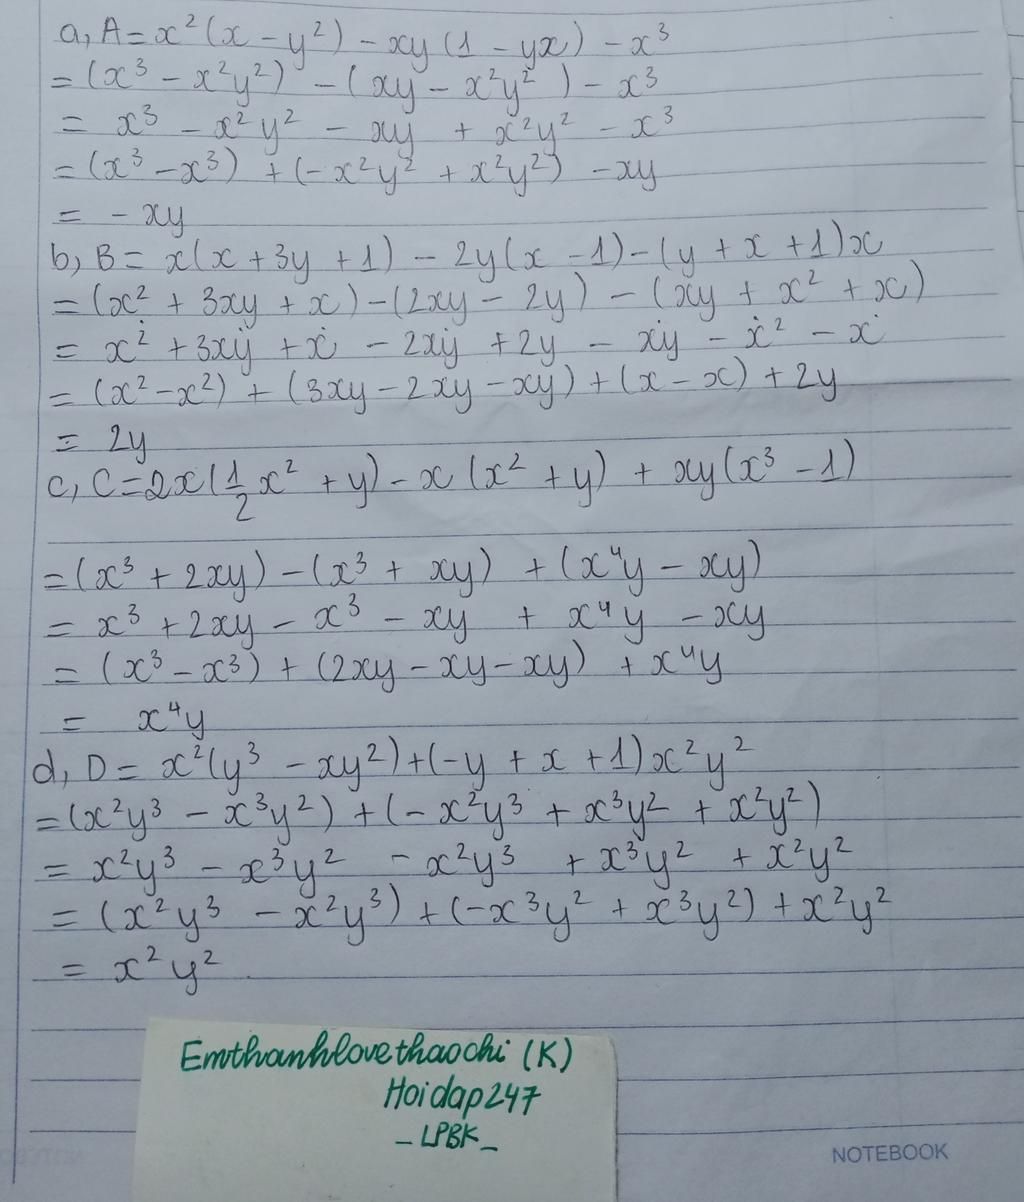 a, A = x²(x - y²) - xy(1 - yx) - x³
= (x³ - x²y²) - (xy - x²y²) - x³
= x³ - x²y² - xy + x²y² - x³
= (x³ - x³) + (-x²y² + x²y²) - xy
= - xy
b, B = x(x + 3y + 1) - 2y(x - 1) - (y + x + 1)x
= (x² + 3xy + x) - (2xy - 2y) - (xy + x² + x)
= x² + 3xy + x - 2xy + 2y - xy - x² - x
= (x² - x²) + (3xy - 2xy - xy) + (x - x) + 2y
= 2y
c, C = 2x(1/2 x² + y) - x(x² + y) + xy(x³ - 1)
= (x³ + 2xy) - (x³ + xy) + (x⁴y - xy)
= x³ + 2xy - x³ - xy + x⁴y - xy
= (x³ - x³) + (2xy - xy - xy) + x⁴y
= x⁴y
d, D = x²(y³ - xy²) + (-y + x + 1)x²y²
= (x²y³ - x³y²) + (-x²y³ + x³y² + x²y²)
= x²y³ - x³y² - x²y³ + x³y² + x²y²
= (x²y³ - x²y³) + (-x³y² + x³y²) + x²y²
= x²y²
Emthanhlovethaochi (K)
Hoidap247
- LPBK -
NOTEBOOK